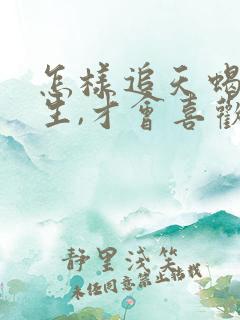 怎樣追天蝎
生,才會喜歡
靜里淺笑
未经同意禁止转载